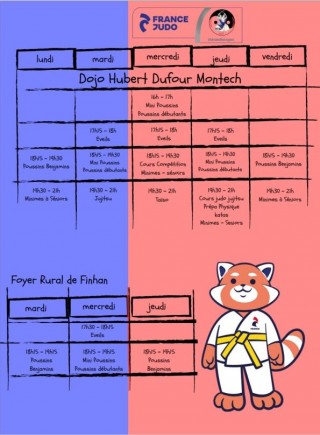 FRANCE
JUDO
lundi mardi mercredi jeudi vendredi
Dojo Hubert Dufour Montech
16h - 17h
Mini Poussins
Poussins débutants
17h15 - 18h
Eveils
17h15 - 18h
Eveils
17h15 - 18h
Eveils
18h15 - 19h30
Poussins Benjamins
18h15 - 19h30
Mini Poussins
Poussins débutants
18h15 - 19h30
Cours Compétitions
Minimes - séniors
18h15 - 19h30
Mini Poussins
Poussins débutants
18h15 - 19h30
Poussins Benjamins
19h30 - 21h
Minimes à Séniors
19h30 - 21h
Jujitsu
19h30 - 21h
Taïso
19h30 - 21h
Cours judo jujitsu
Prépa Physique
katas
Minimes - Séniors
19h30 - 21h
Minimes à Séniors
Foyer Rural de Finhan
mardi mercredi jeudi
17h30 - 18h15
Eveils
18h15 - 19h15
Poussins
Benjamins
18h15 - 19h15
Mini Poussins
Poussins débutants
18h15 - 19h15
Poussins
Benjamins